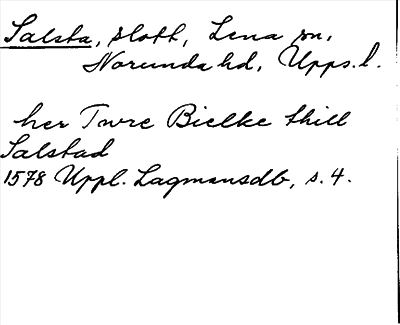 Salsta, slott, Lena sn,
Norunda hd, Upps. l.
her Twre Bielke thill
Salstad
1578 Uppl. Lagmansdb, s. 4.